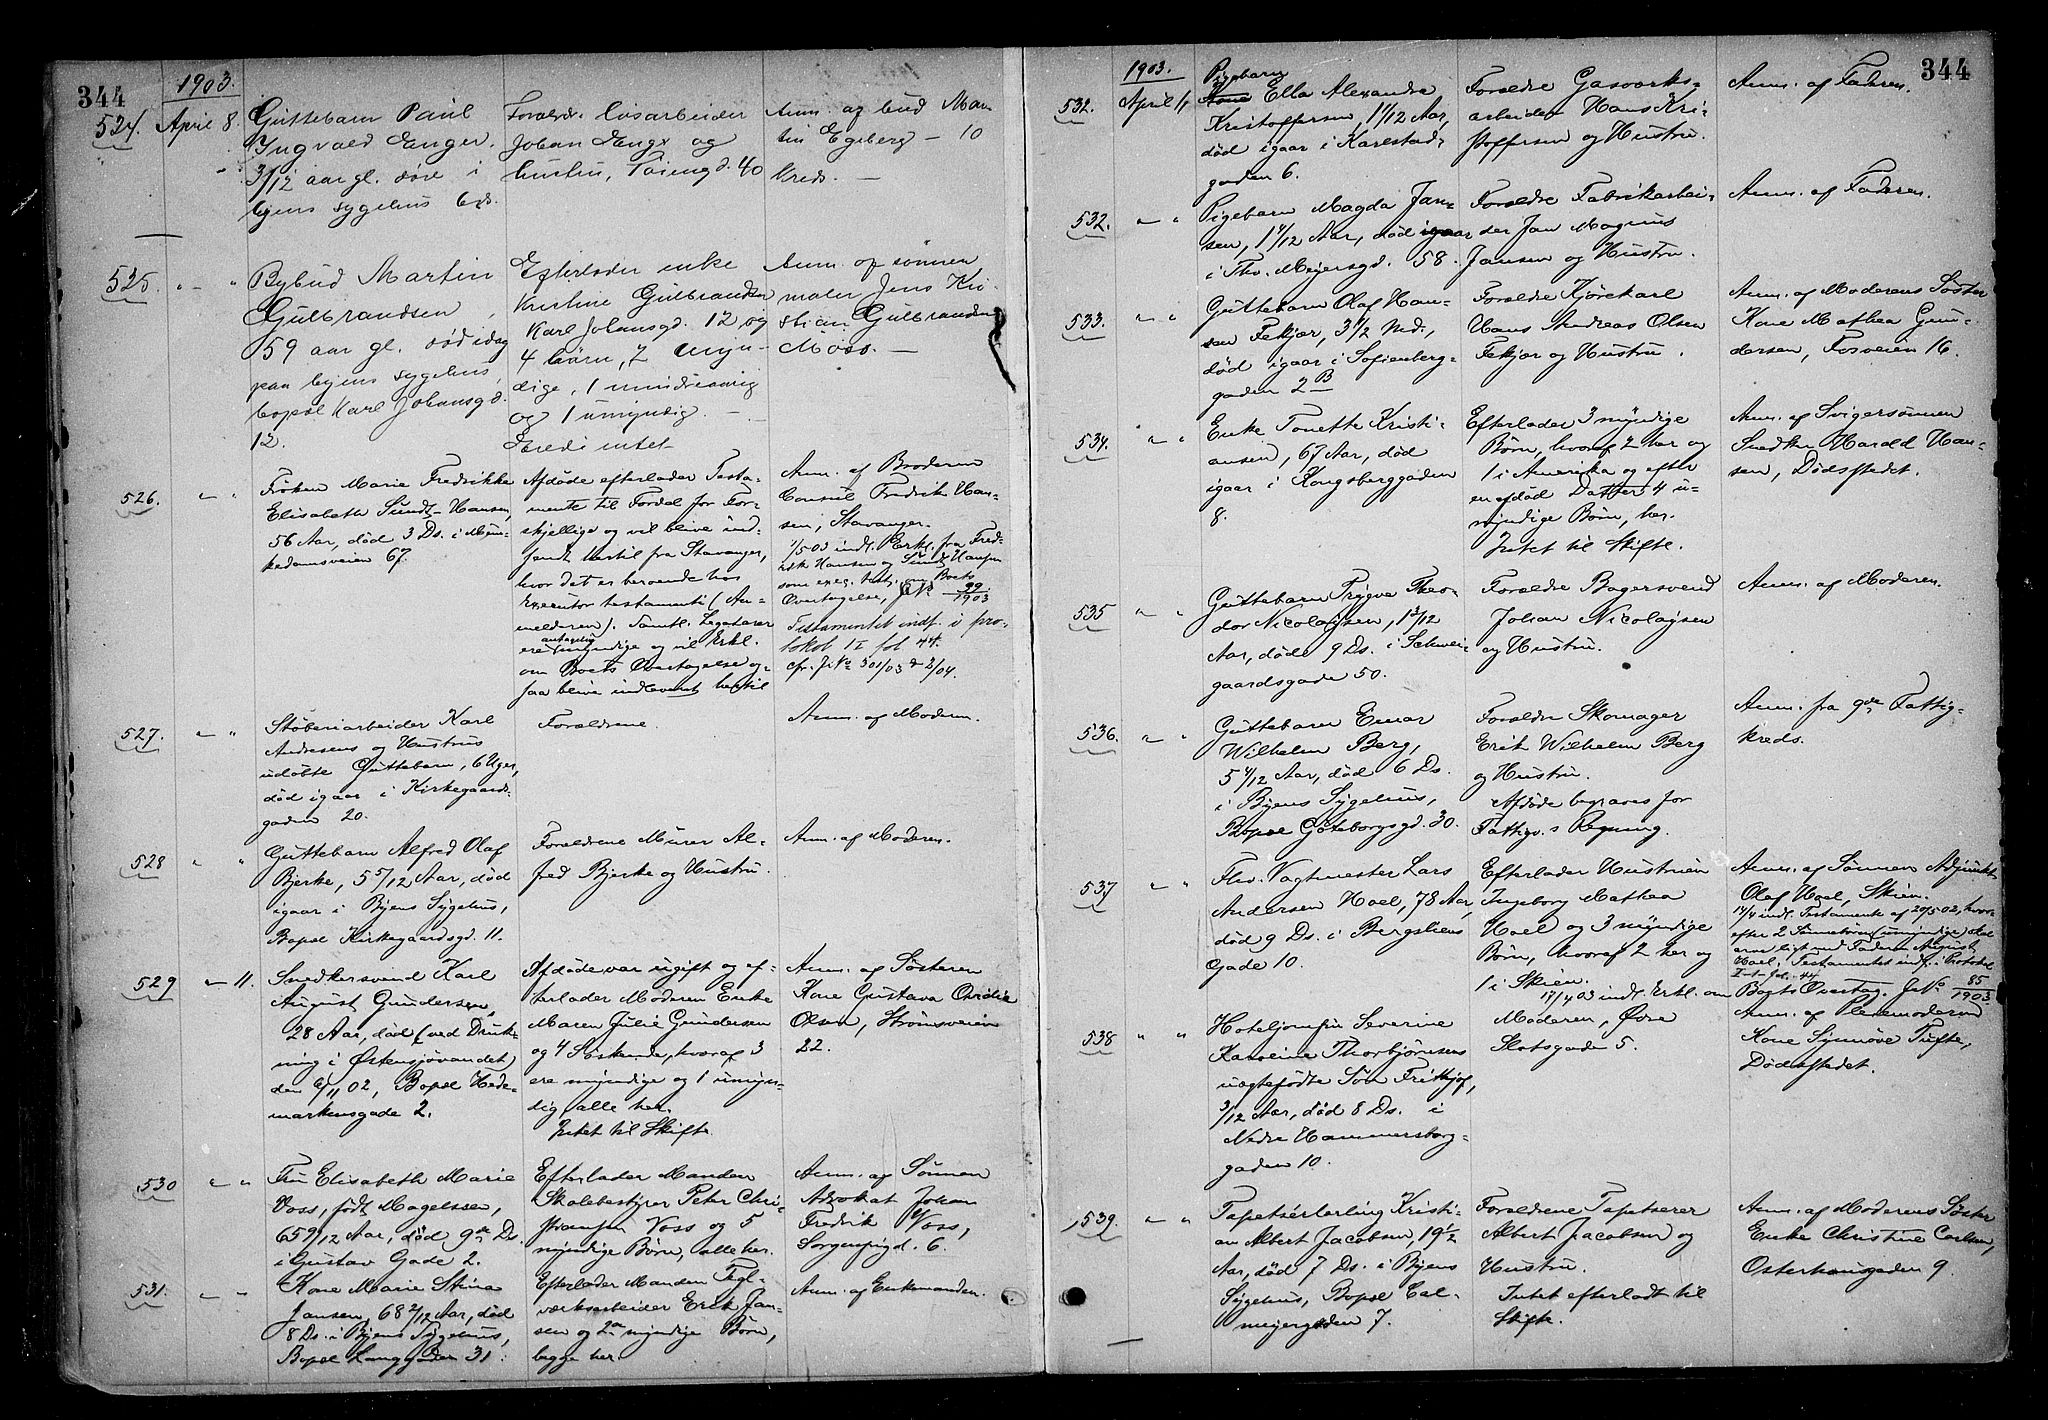 344
1903.
524. April 8.
Guttebarn Paul
Ingvald Enger,
3/12 aar gl. død i
byens sygehus 6 ds.
Forældr. løsarbeider
Johan Enger og
hustru, Tøiengd. 40
Anm. af bud Mar
tin Egeberg — 10
kreds. —
525. — " — "
Bybud Martin
Gulbrandsen,
59 aar gl. død idag
paa byens sygehus,
bopæl Karl Johansgd.
12.
Efterlader enke
Kristine Gulbrandsen
Karl Johansgd. 12 og
4 børn, 2 myn-
dige, 1 mindreaarig
og 1 umyndig. —
Intet
Anm. af sønnen
maler Jens Kri-
stian Gulbrandsen
Moss. —
526. — " "
Frøken Marie Fredrikke
Elisabeth Sundt-Hansen,
56 Aar, død 3 Ds. i Mun-
kedamsveien 67.
Afdøde efterlader Testa-
mente til Fordel for For-
skjellige og vil blive ind-
sendt hertil fra Stavanger,
hvor det er beroende hos
Executor testamenti (An-
melderen). Samtl. Legatarer
ere antagelig myndige og vil Erkl.
om Boets Overtagelse og-
saa blive indleveret hertil
Anm. af Broderen
Consul Fredrik Han-
sen, Stavanger.
1/5 03 indl. Erkl. fra Fred-
rik Hansen og Sundt Hansen
som exeq. test. om Boets
Overtagelse, J.No 99/1903
Testamentet indf. i pro-
tokol I fol 44.
cfr. J.No 301/03 & 2/04.
527. — " "
Støberiarbeider Karl
Andresens og Hustrus
udøbte Guttebarn, 6 Uger,
død igaar i Kirkegaards-
gaden 20.
Forældrene.
Anm. af Moderen.
528 " "
Guttebarn Alfred Olaf
Bjerke, 5 5/12 Aar, død
igaar i Byens Sygehus,
Bopæl Kirkegaardsgd. 11.
Forældrene Murer Al-
fred Bjerke og Hustru.
Anm. af Moderen.
529 — 11.
Snedkersvend Karl
August Gundersen,
28 Aar, død (ved Druk-
ning i Østensjøvandet)
den 6/11 02, Bopæl Hede-
markensgade 2.
Afdøde var ugift og ef-
terlader Moderen Enke
Maren Julie Gundersen
og 4 Søskende, hvoraf 3
ere myndige og 1 umyn-
dig, alle her.
Intet til Skifte.
Anm. af Søsteren
Kone Gustava Ovidia
Olsen, Strømsveien
22.
530 " "
Fru Elisabeth Marie
Voss, født Magelssen,
65 9/12 Aar, død 9de Ds.
i Gustav Gade 2.
Efterlader Manden
Skolebestyrer Peter Chri-
stian Voss og 5
myndige Børn, alle her.
Anm. af Sønnen
Advokat Johan
Fredrik Voss,
Sorgenfrigd. 6.
531. — " "
Kone Marie Stina
Jansen, 68 2/12 Aar, død
8 Ds. i Byens Sygehus,
Bopæl Langgaden 31.
Efterlader Manden Tegl-
værksarbeider Erik Jan-
sen og 2de myndige Børn,
begge her.
Anm. af Enkemanden.
344
1903.
532. April 11
Pigebarn
Kone Ella Alexandra
Kristoffersen, 1 1/12 Aar,
død igaar i Karlstad-
gaden 6.
Forældre Gasværks-
arbeider Hans Kri-
stoffersen og Hustru.
Anm. af Faderen.
532. — " "
Pigebarn Magda Jan-
sen, 1 4/12 Aar, død igaar
i Thv. Meyersgd. 58.
Forældre Fabrikarbei-
der Jan Magnus
Jansen og Hustru.
Anm. af Faderen.
533. — " "
Guttebarn Olaf Han-
sen Fekjær, 3 1/2 Md.,
død igaar i Sofienberg-
gaden 2 B
Forældre Kjørekarl
Hans Andreas Olsen
Fekjær og Hustru.
Anm. af Moderens Søster
Kone Mathea Gun-
dersen, Fosveien 16.
534. — " "
Enke Tonette Kristi-
ansen, 67 Aar, død
igaar i Kongsberggaden
8.
Efterlader 3 myndige
Børn, hvoraf 2 her og
1 i Amerika og efter
en afdød Datter 4 u-
myndige Børn, her.
Intet til Skifte.
Anm. af Svigersønnen
Snedker Harald Han-
sen, Dødsstedet.
535 — " "
Guttebarn Trygve Theo-
dor Nicolaysen, 1 3/12
Aar, døde 9 Ds. i Schwei-
gaardsgade 50.
Forældre Bagersvend
Johan Nicolaysen
og Hustru.
Anm. af Moderen.
536. — " "
Guttebarn Einar
Wilhelm Berg,
5 4/12 Aar, død 6 Ds.
i Byens Sygehus,
Bopæl Göteborgsgd. 30.
Forældre Skomager
Erik Wilhelm Berg
og Hustru.
Afdøde begraves for
Fattigv.s Regning.
Anm. fra 9de Fattig-
kreds.
537 — " "
Fhv. Vagtmester Lars
Andersen Hoel, 78 Aar,
død 9 Ds. i Bergsliens
Gade 10.
Efterlader Hustruen
Ingeborg Mathea
Hoel og 3 myndige
Børn, hvoraf 2 her og
1 i Skien.
17/4 03 indl. Erkl. om
Anm. af Sønnen Adjunkt
Olaf Hoel, Skien.
17/4 indl. Testamente af 20/5 02, hvor-
efter 2 Sønnebørn (umyndige) skal
arve ligt med Faderen August
Hoel. Testamentet indf. i Protokol
I fol. 44
Boets Overtag. J.No 85/1903
538 " "
Hoteljomfru Severine
Karoline Thorbjørnsens
uægtefødte Søn Frithjof,
3/12 Aar, død 8 Ds. i
Nedre Hammersborg-
gaden 10.
Moderen, Øvre
Slotsgade 5.
Anm. af Pleiemoderen
Kone Synnøve Tufte,
Dødsstedet.
539. — " "
Tapetsérlærling Kristi-
an Albert Jacobsen, 19 1/2
Aar, død 7 Ds. i Byens
Sygehus, Bopæl Cal-
meyergaden 7.
Forældrene Tapetserer
Albert Jacobsen og
Hustru.
Intet efterladt til
Skifte.
Anm. af Moderens Søster
Enke Christine Carlsen,
Osterhausgaden 9